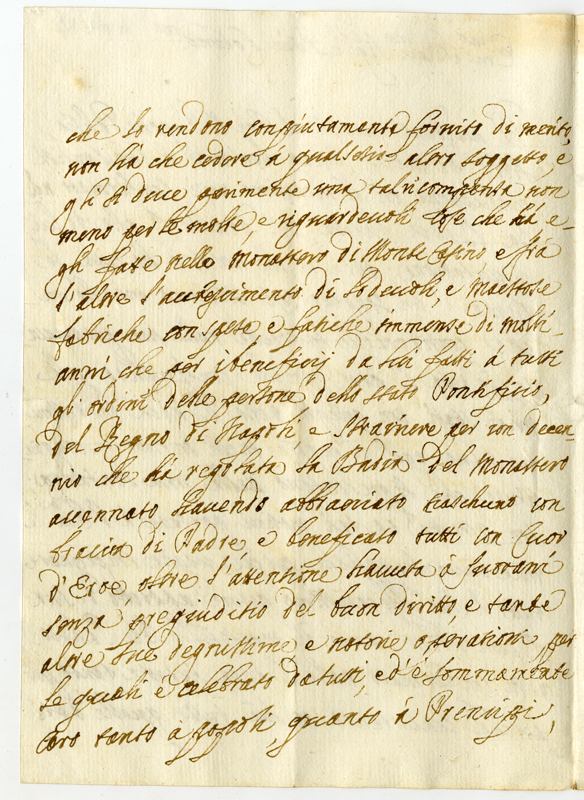 che lo rendono compiutamente fornito di merito,
non hà che cedere à qualsisia altro soggetto, e
gli si deve parimente una tal ricompensa non
meno per le molte, e riguardevoli cose che hà e-
gli fatte nelle monastero di Monte Casino e frà
l'altre l'accrescimento di lodevoli, e maestose
fabriche con spese e fatiche immense di molti
anni che per i beneficij da lui fatti à tutti
gli ordini delle persone dello stato Pontificio,
del Regno di Napoli, e straniere per un decen-
nio che hà regolata la Badia del Monastero
accennato havendo abbracciato ciaschuno con
braccia di Padre, e beneficato tutti con Cuor
d'Eroe oltre l'attentione havuta à suovani
senza pregiuditio del buon diritto, e tante
altre sue degnissime e notorie operationi, per
le quali è celebrato da tutti, ed è sommamente
caro tanto à popoli, quanto à Prencipi,